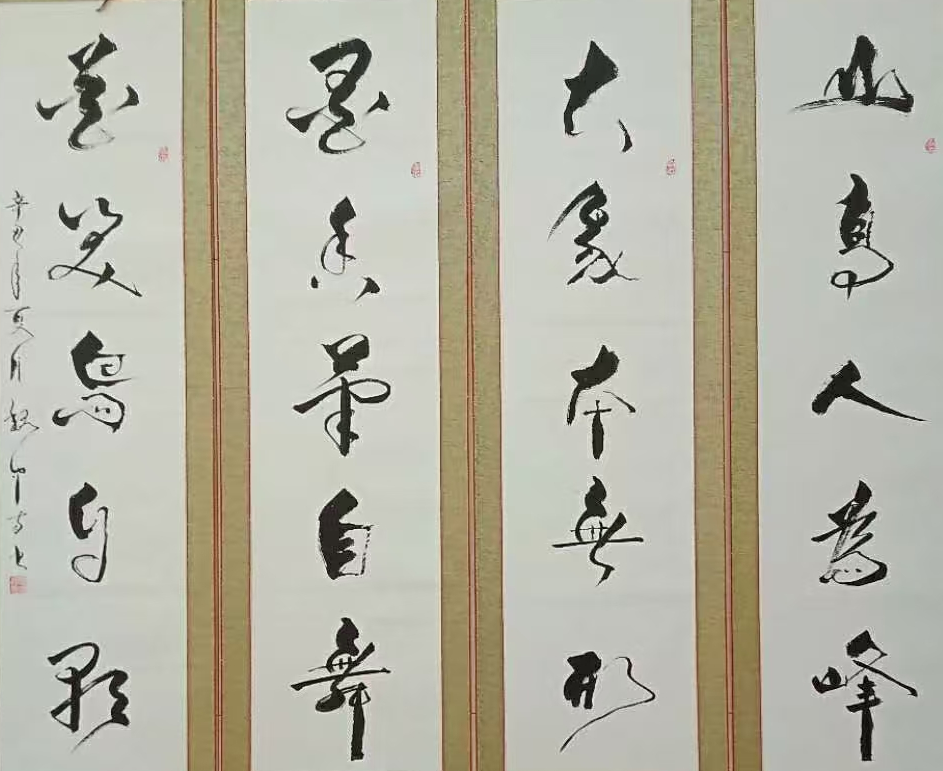 山高人為峰
大象本無形
墨香筆自舞
花笑鳥自歌
辛丑年夏月